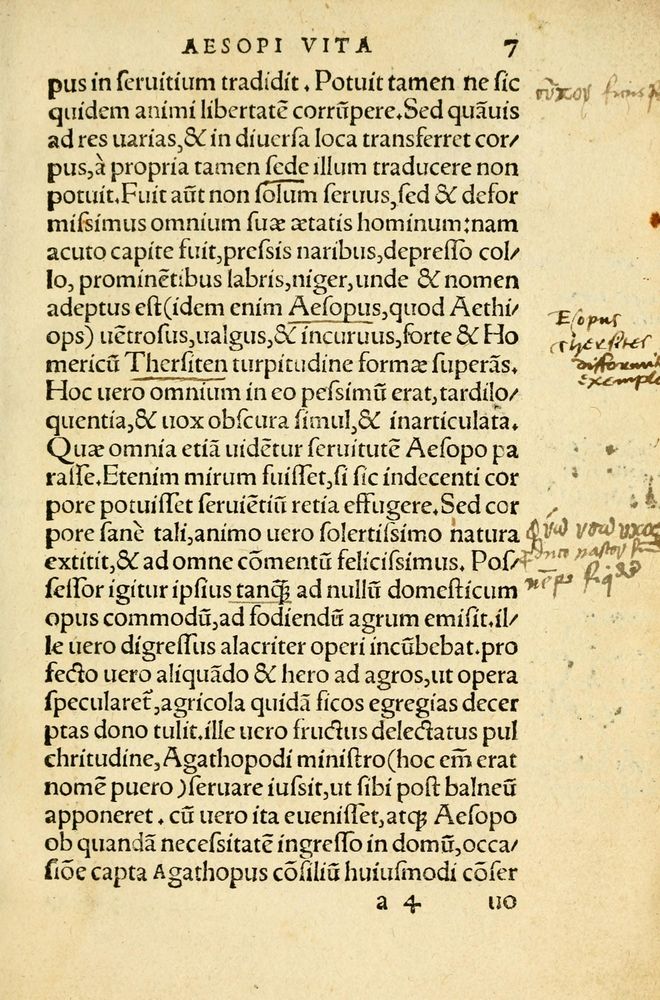 AESOPI VITA 7
pus in ſeruitium tradidit. Potuit tamen ne ſic
quidem animi libertatē corrūpere. Sed quāuis
ad res uarias, & in diuerſa loca transferret cor/
pus, à propria tamen ſede illum traducere non
potuit. Fuit aūt non ſolum ſeruus, ſed & defor
miſsimus omnium ſuæ ætatis hominum: nam
acuto capite fuit, preſsis naribus, depreſſo col/
lo, prominētibus labris, niger, unde & nomen
adeptus eſt (idem enim Aeſopus, quod Aethi/
ops) uētroſus, ualgus, & incuruus, forte & Ho
mericū Therſiten turpitudine formæ ſuperās.
Hoc uero omnium in eo peſsimū erat, tardilo/
quentia, & uox obſcura ſimul, & inarticulata.
Quæ omnia etiā uidētur ſeruitutē Aeſopo pa
raſſe. Etenim mirum fuiſſet, ſi ſic indecenti cor
pore potuiſſet ſeruiētiū retia effugere. Sed cor
pore ſanè tali, animo uero ſolertiſsimo natura
extitit, & ad omne cōmentū feliciſsimus. Poſ/
ſeſſor igitur ipſius tanq̄; ad nullū domeſticum
opus commodū, ad fodiendū agrum emiſit. il/
le uero digreſſus alacriter operi incūbebat. pro
fecto uero aliquādo & hero ad agros, ut opera
ſpecularet̃, agricola quidā ficos egregias decer
ptas dono tulit. ille uero fructus delectatus pul
chritudine, Agathopodi miniſtro (hoc em̄ erat
nomē puero) ſeruare iuſsit, ut ſibi poſt balneū
apponeret. cū uero ita eueniſſet, atq; Aeſopo
ob quandā neceſsitatē ingreſſo in domū, occa/
ſiōe capta Agathopus cōſiliū huiuſmodi cōſer
a 4 uo
Esopus
Thersites
exemplo